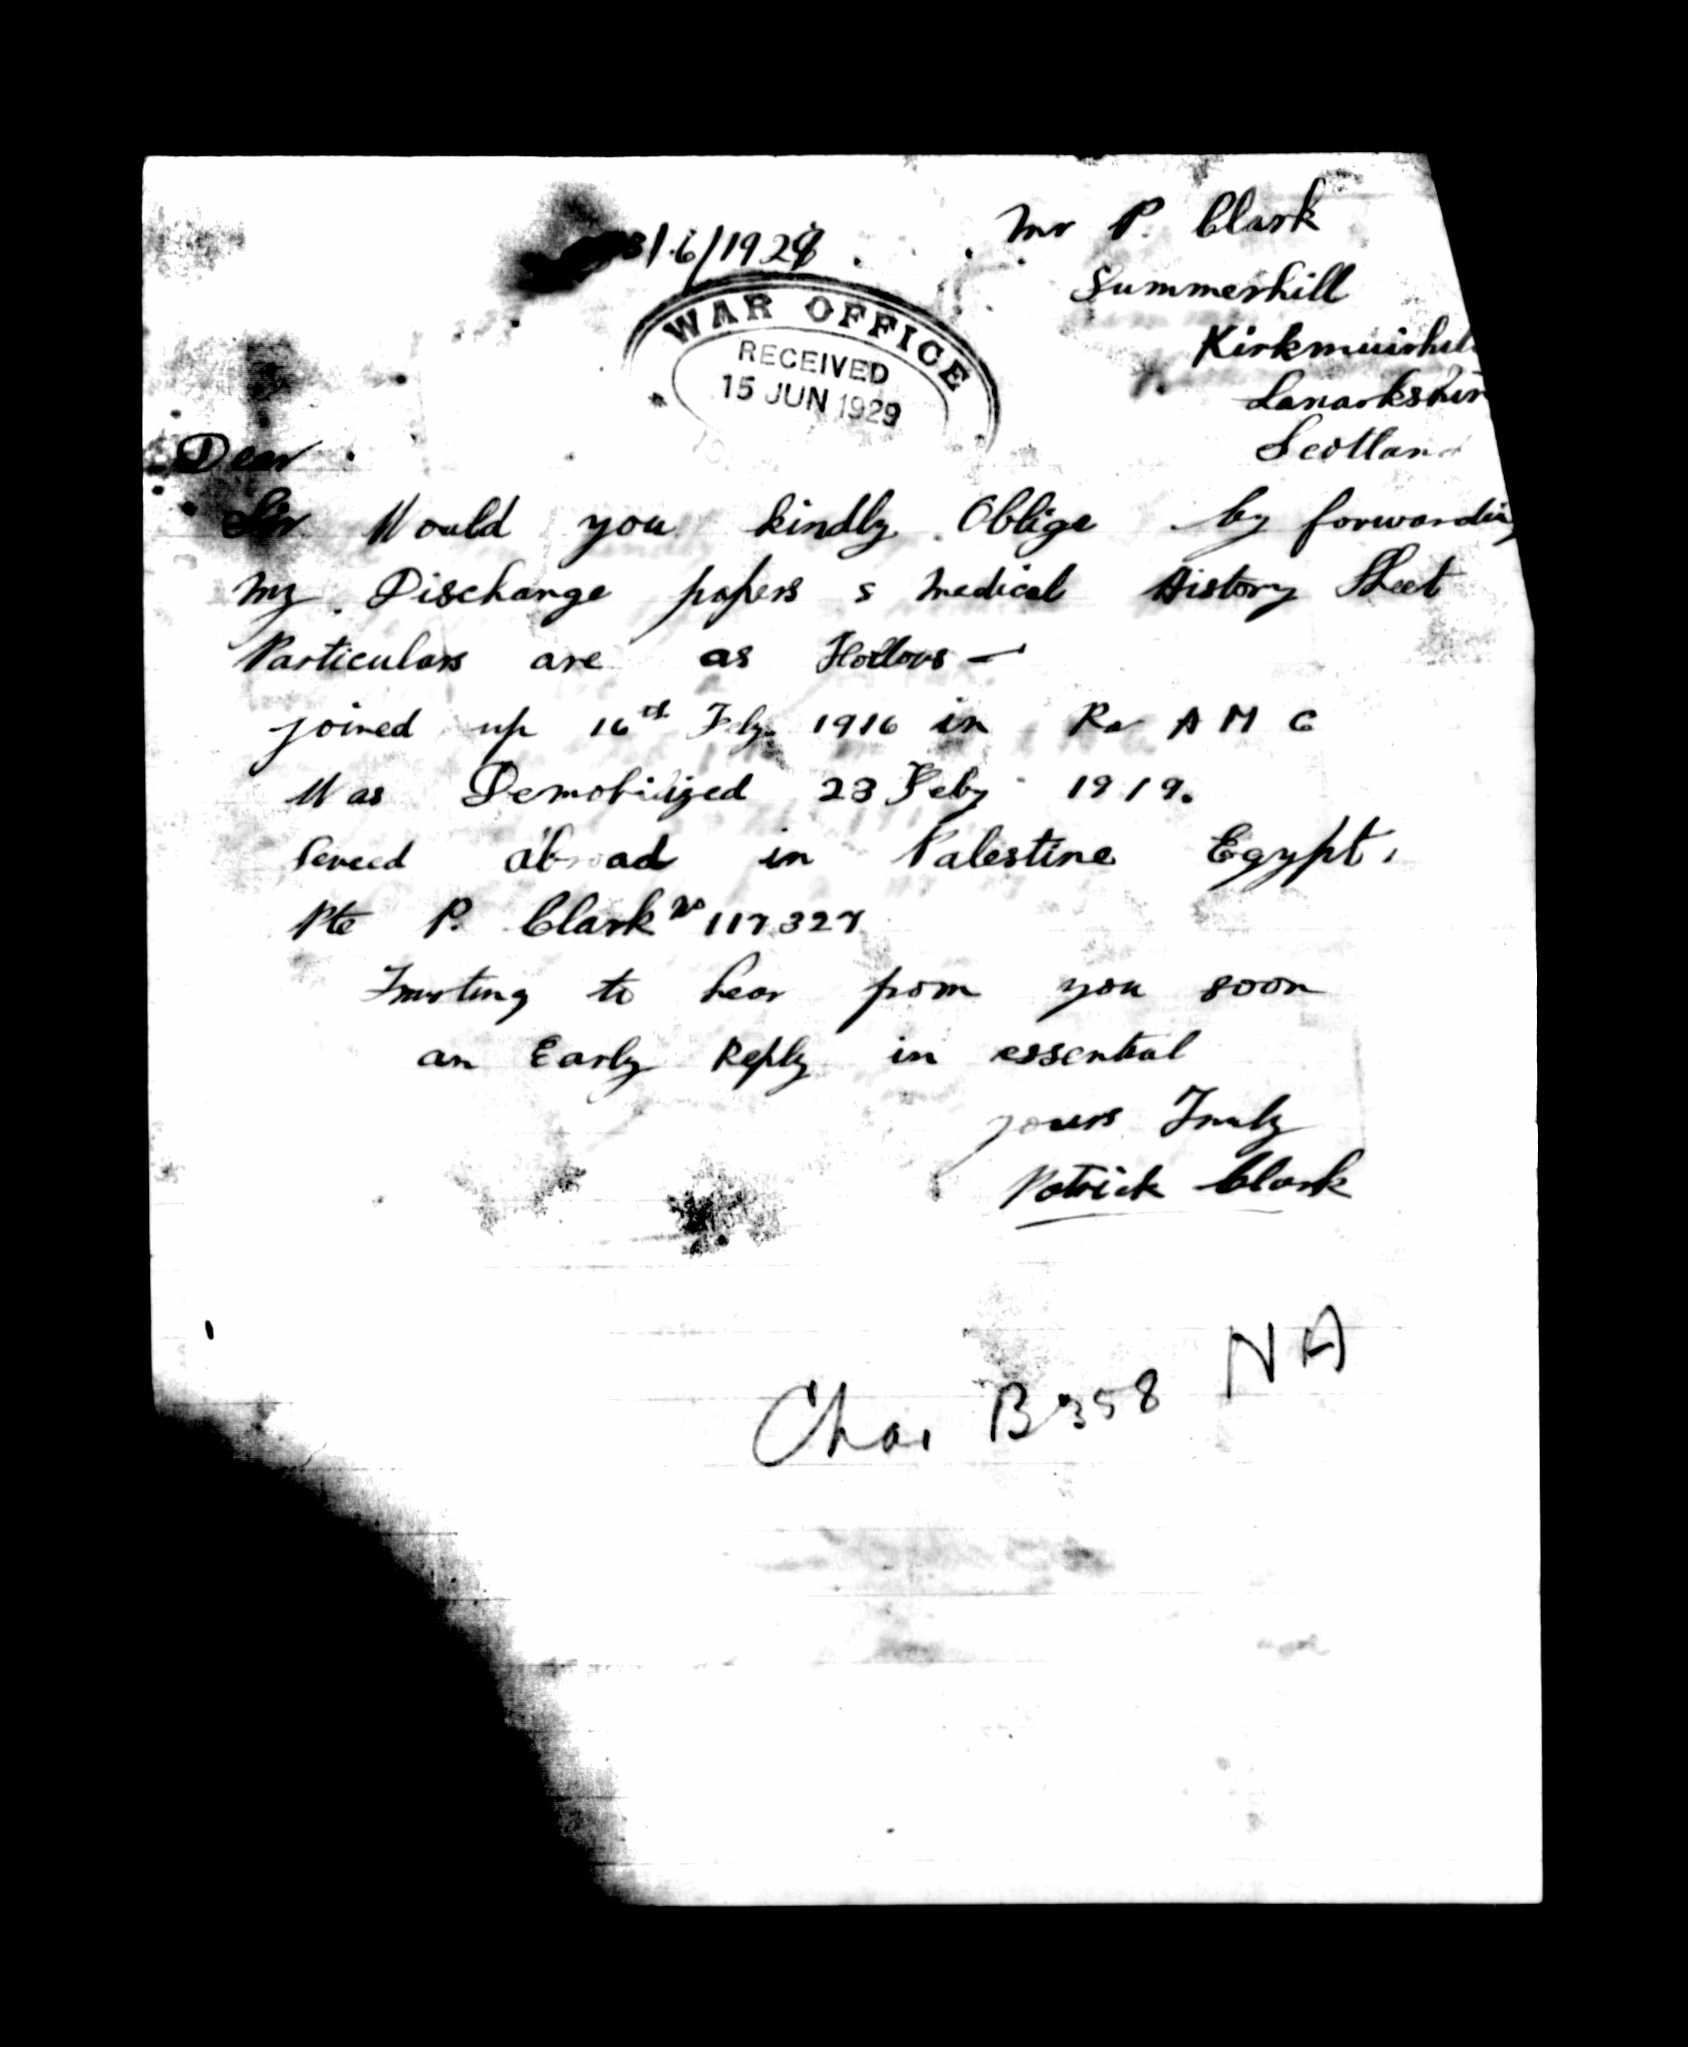 3/6/1929
Mr P. Clark
Summerhill
Kirkmuirhill
Lanarkshire
Scotland
WAR OFFICE
RECEIVED
15 JUN 1929
Dear
Sir Would you kindly Oblige by forwarding
my Discharge papers & medical History Sheet
Particulars are as Follows —
joined up 16th Feby 1916 in R A M C
Was Demobilized 23 Feby 1919.
Served abroad in Palestine Egypt.
Pte P. Clark No 117327
Trusting to hear from you soon
an Early Reply in essential
yours Truly
Patrick Clark
NA
Char B358